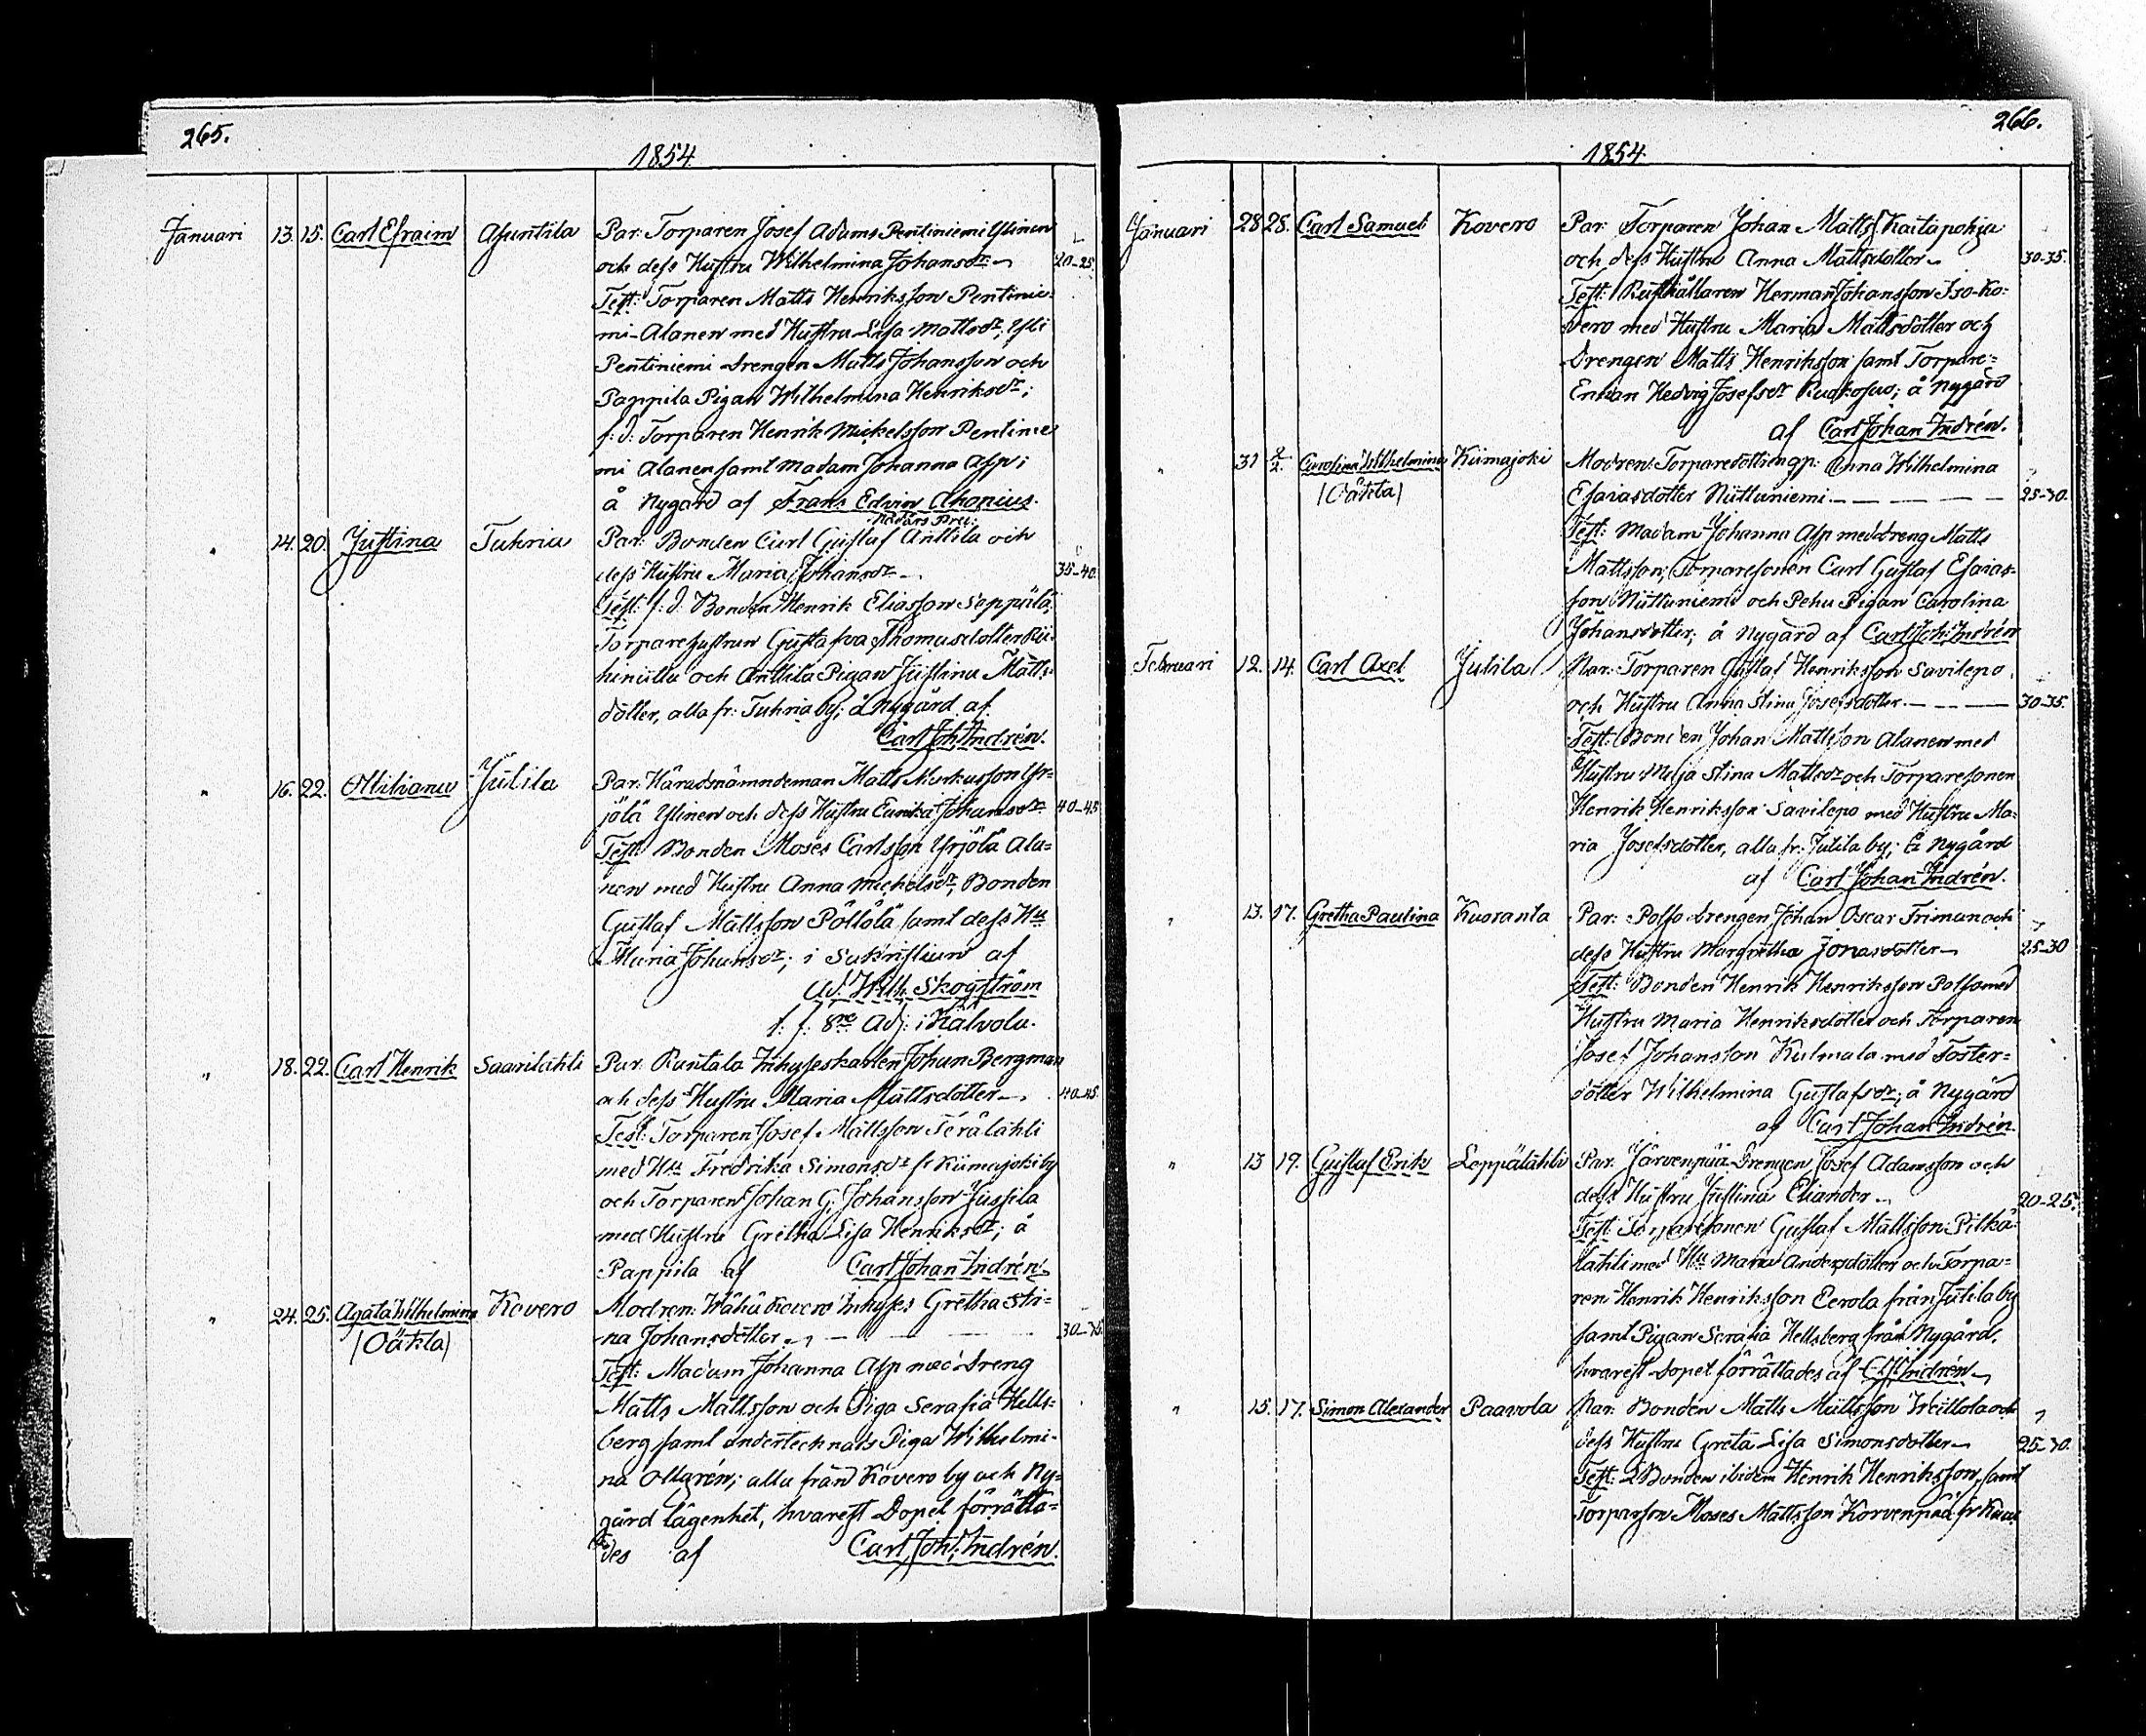 265.
1854.
Januari 13. 15. Carl Efraim Asuntila Par: Torparen Josef Adams Pentiniemi Ylinen
och dess Hustru Wilhelmina Johansdr 20-25.
Test: Torparen Matts Henriksson Pentinie-
mi-Alanen med Hustru Lisa Mattsdr; Yli
Pentiniemi Drengen Matts Johansson och
Pappila Pigan Wilhelmina Henriksdr;
f: d: Torparen Henrik Mickelsson Pentinie
mi Alanen samt Madam Johanna Asp;
å Nygård af Frans Edvin Ahonius.
" 14. 20. Justina Tuhria Par: Bonden Carl Gustaf Anttila och
dess Hustru Maria Johansdr 35-40.
Test: f: d: Bonden Henrik Eliasson Seppälä,
Torparehustrun Gustafva Thomasdotter Rii-
hiniittu och Anttila Pigan Justina Matts-
dotter, alla fr: Tuhria by; å Nygård af
Carl Joh: Indrén.
" 16. 22. Ottiliana Jutila Par: Häradsnämndeman Matts Markusson Yr-
jölä Ylinen och dess Hustru Eunika Johansdr 40-45
Test: Bonden Moses Carlsson Yrjölä Ala-
nen med Hustru Anna Michelsdr, Bonden
Gustaf Mattsson Pöllölä samt dess Hu
Maria Johansdr; i Sakristian af
Ad. Wilh. Skogström
t. f. 8re Adj: i Kalvola.
" 18. 22. Carl Henrik Saarilahti Par: Runtala Inhyseskarlen Johan Bergman
och dess Hustru Maria Mattsdotter 40-45.
Test: Torparen Josef Mattsson Terälahti
med Hu Fredrika Simonsdr fr Kiimajoki by
och Torparen Johan G. Johansson Jussila
med Hustru Gretha Lisa Henriksdr; å
Pappila af Carl Johan Indrén
" 24. 25. Agata Wilhelmina Kovero Modren: Wähä Kovero Inhyses Gretha Sti-
(Oäkta) na Johansdotter
Test: Madam Johanna Asp med Dreng
Matts Mattsson och Piga Serafia Hells-
berg samt undertecknads Piga Wilhelmi-
na Ollgrén; alla från Kovero by och Ny-
gård lägenhet, hvarest Dopet förrätta-
des af Carl Joh: Indrén.
266.
1854.
Januari 28 28. Carl Samuel Kovero Par: Torparen Johan Matts Kaitapohja
och dess Hustru Anna Mattsdotter 30-35.
Test: Rusthållaren Herman Johansson Iso-Ko-
vero med Hustru Maria Mattsdotter och
Drengen Matts Henriksson samt Torpare-
Enkan Hedvig Josefsdr Ruokosuo; å Nygård
af Carl Johan Indrén.
" 31 2/2. Carolina Wilhelmina Kiimajoki Modren: Torparedottren gp: Anna Wilhelmina
(Oäkta) Esaiasdotter Niittuniemi 25-30.
Test: Madam Johanna Asp med dreng Matts
Mattsson; Torparesonen Carl Gustaf Esaias-
son Niittuniemi och Pehu Pigan Carolina
Johansdotter; å Nygård af Carl Joh: Indrén
Februari 12. 14. Carl Axel Jutila Par: Torparen Gustaf Henriksson Savilepo
och Hustru Anna Stina Josefsdotter 30-35.
Test: Bonden Johan Mattsson Alanen med
Hustru Maja Stina Mattsdr och Torparesonen
Henrik Henriksson Savilepo med Hustru Ma-
ria Josefsdotter, alla fr: Jutila by; å Nygård
af Carl Johan Indrén.
" 13. 17. Gretha Paulina Kuoranta Par: Polso Drengen Johan Oscar Friman och
dess Hustru Margretha Jonasdotter 25-30
Test: Bonden Henrik Henriksson Polso med
Hustru Maria Henriksdotter och Torparen
Josef Johansson Kulmala med Foster-
dotter Wilhelmina Gustafsdr; å Nygård
af Carl Johan Indrén.
" 13 19. Gustaf Erik Leppälahti Par: Järvenpää Drengen Josef Adamsson och
dess Hustru Justina Eliander 20-25.
Test: Torparesonen Gustaf Mattsson Pitkä-
lahti med Hu Maria Andersdotter och Torpa-
ren Henrik Henriksson Eerola från Jutila by
samt Pigan Serafia Hellsberg från Nygård,
hvarest Dopet förrättades af C. J. Indrén
" 15. 17. Simon Alexander Paavola Par: Bonden Matts Mattsson Weitlola och
dess Hustru Greta Lisa Simonsdotter 25-30.
Test: Bonden ibidem Henrik Henriksson, samt
Torparson Moses Mattsson Korvenpää fr